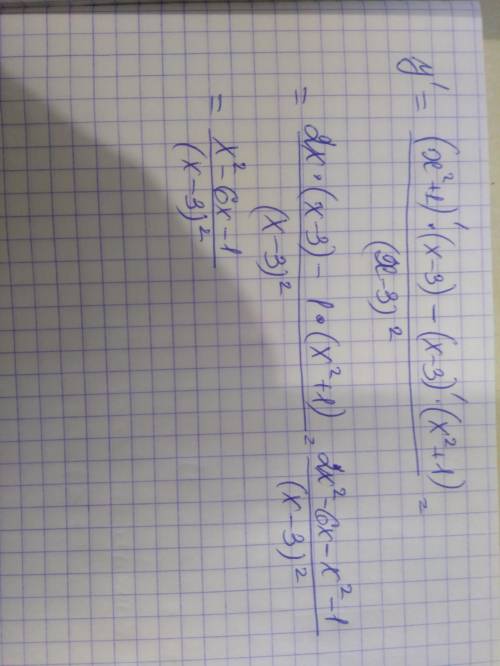 y' = ((x²+1)'·(x-3) - (x-3)'·(x²+1))/(x-3)² =
= (2x·(x-3) - 1·(x²+1))/(x-3)² = (2x²-6x-x²-1)/(x-3)²
= (x²-6x-1)/(x-3)²